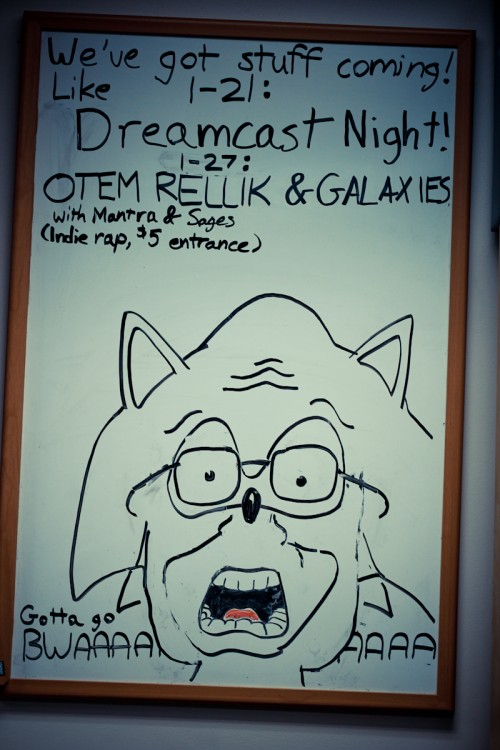 We've got stuff coming!
Like 1-21:
Dreamcast Night!
1-27:
OTEM RELLIK & GALAXIES
with Mantra & Sages
(Indie rap, $5 entrance)
Gotta go
BWAAAA AAAA